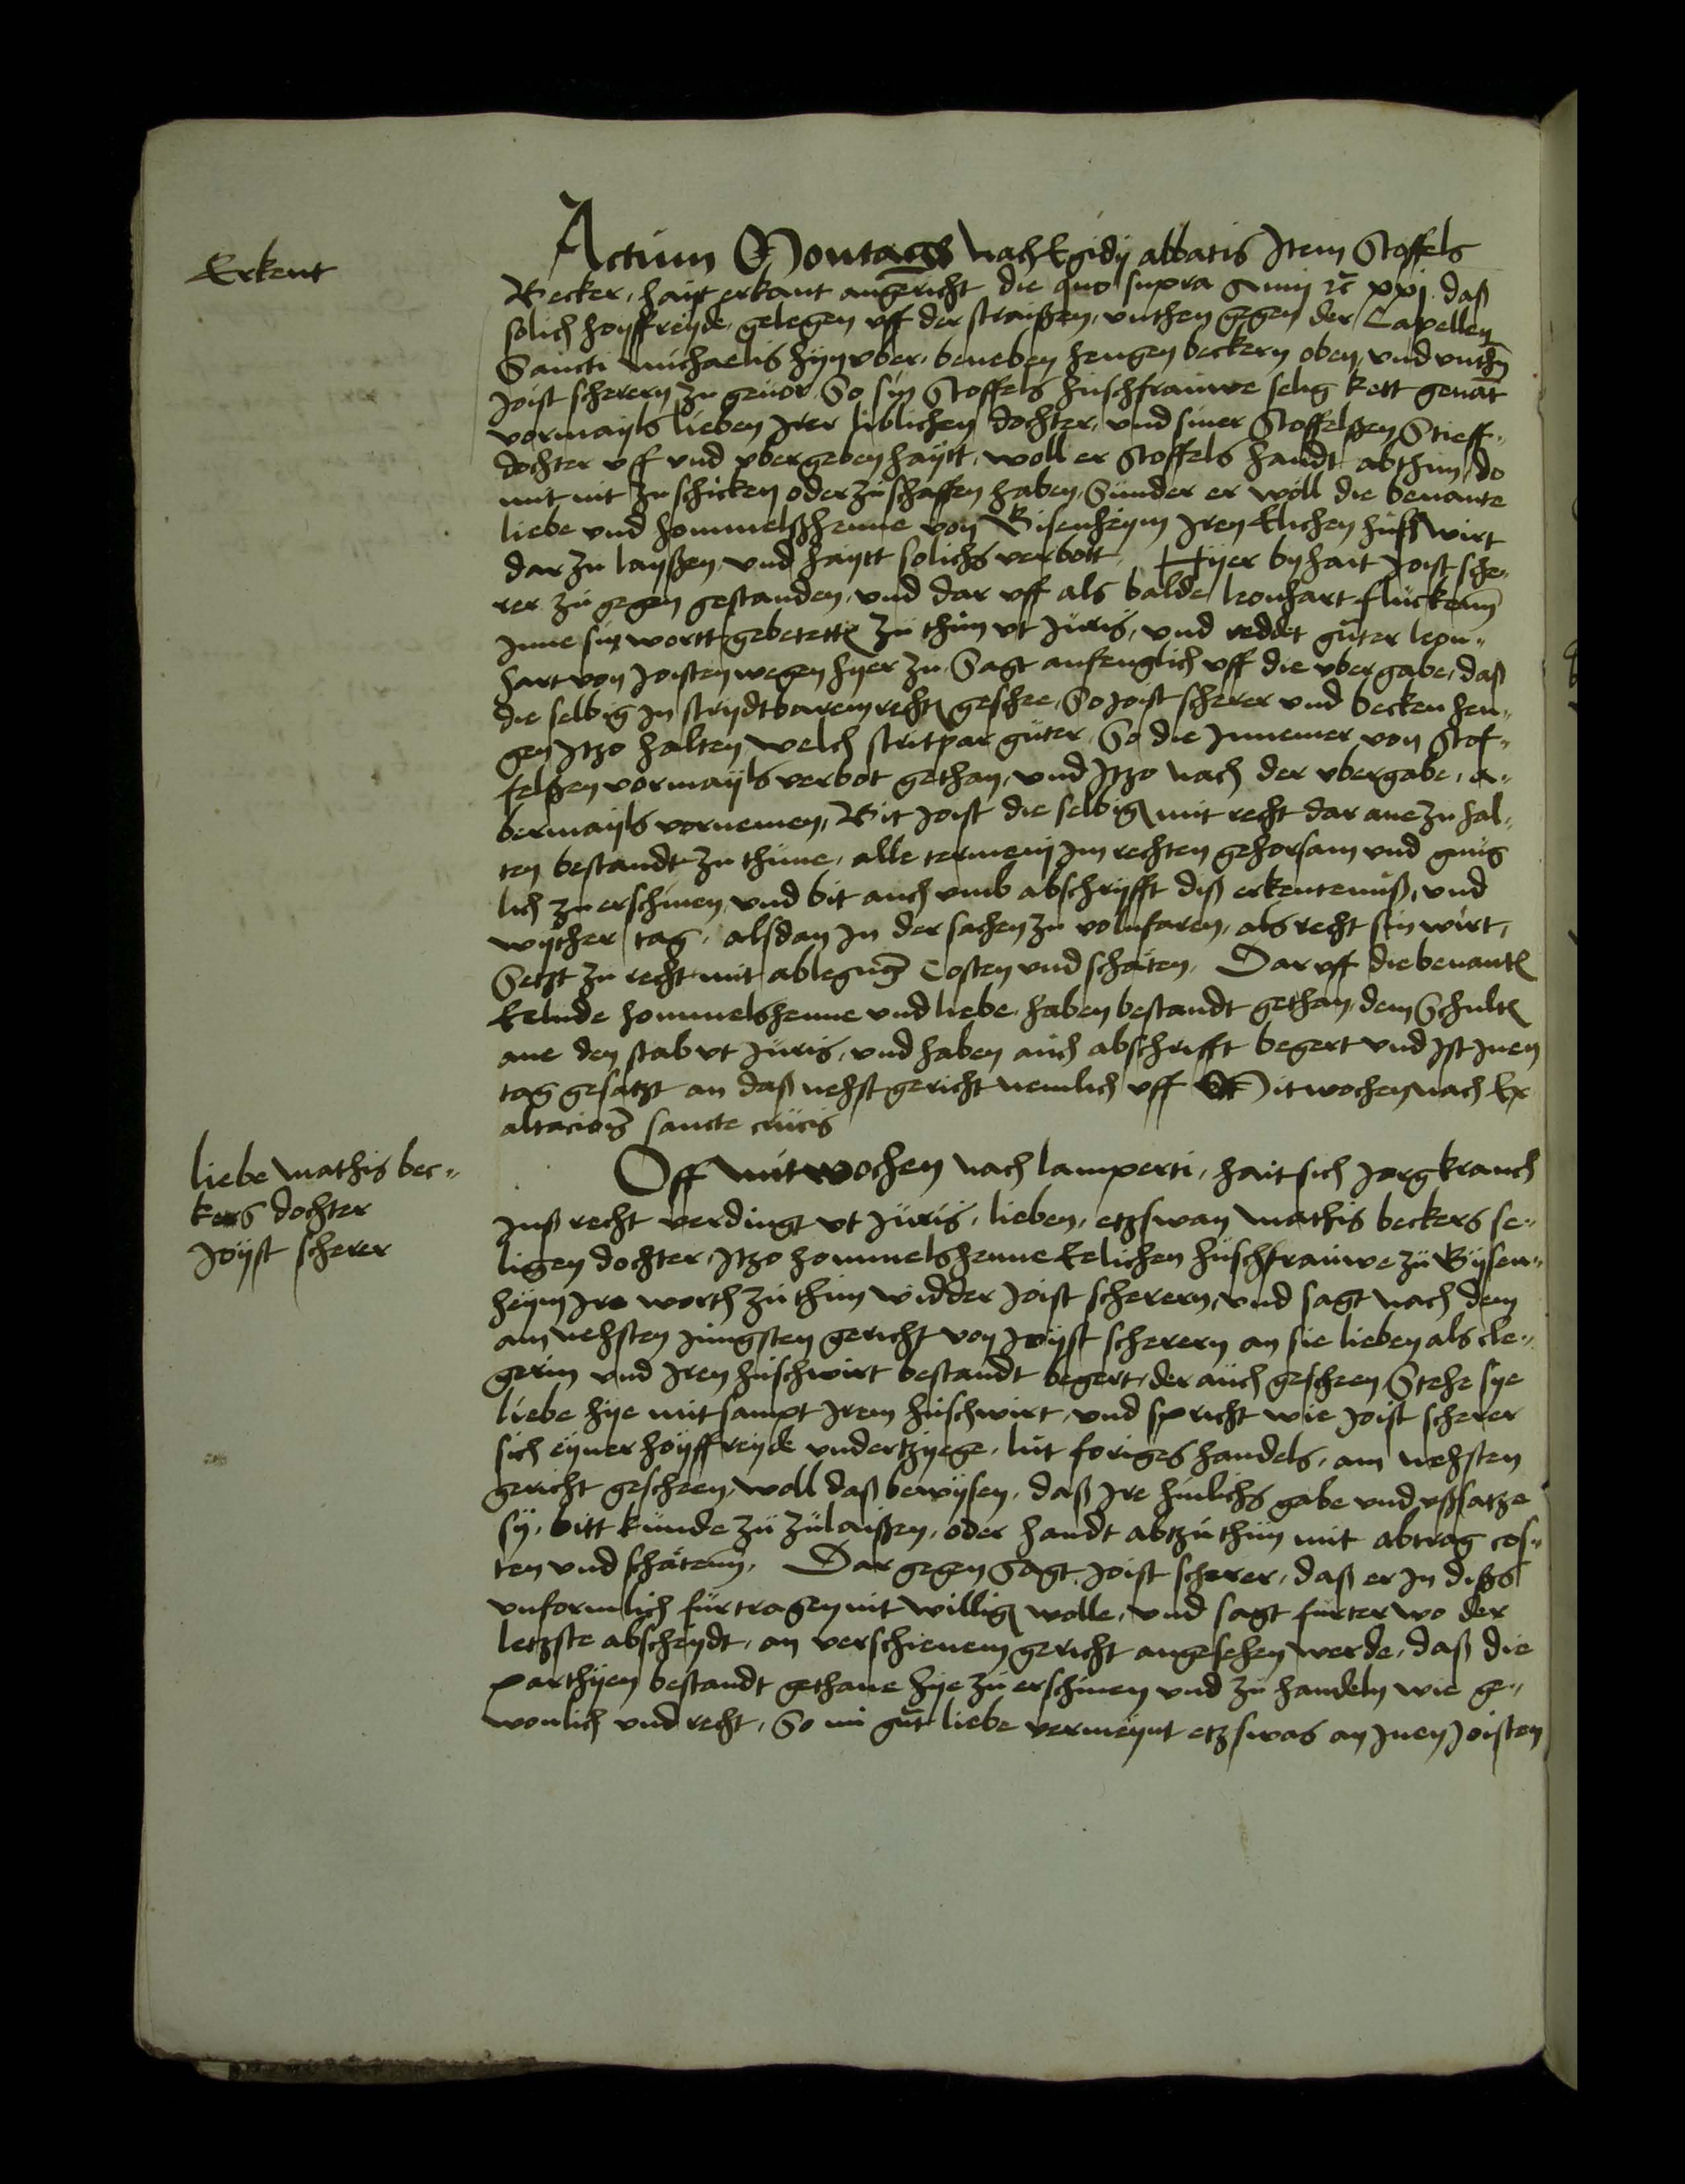 Erkent
Actum Montags nach Egidij abbatis Item Stoffels
Becker, hait erkant angericht die quo supra Anni etc xxj. daß
solich hoyffreyde, gelegen vff der straißen, vnthen gegen der Capellen
Sancti michaelis hyn vber, beneben hengen beckern oben, vnd vnthen
Joist scherern zu geuor, So sin Stoffels huschfrauwe selig kett genant
vormayls lieben Irer liblichen dochter, vnd siner Stoffelßen Stieff-
dochter vff vnd vbergeben haytt, woll er Stoffels handt abthun, do
mit nit zu schicken oder zu schaffen haben, Sunder er woll die benante
liebe vnd hommelßhenne von Bisenheym Iren Elichen hußwirt
dar zu layßen, vnd haytt solichs verbott. Hyer by hait Joist sche-
rer zu gegen gestanden, vnd dar vff als balde leonhart fluckenn
Inne sin wortt gebetten zu thun vt Juris, vnd reddet guter leon-
hart von Joisten wegen hyer zu, Sagt anfenglich vff die vbergabe, daß
die selbig In strydtbarem rechten geschee, So Joist scherer vnd becken hen-
gen Itzo halten, welch stritpar guter, So die Innemer von Stof-
felßen vormayls verbot gethan, vnd Itzo nach der vbergabe, a-
bermayls vornemen, Bit Joist die selbigen mit recht dar ane zu hal-
ten bestandt zu thune, alle termeny Im rechten gehorsam vnd gnug
lich zu erschinen, vnd bit auch vmb abschryfft diß erkentenuß, vnd
wyther tag, alsdan In der sachen zu volnfaren, als recht sin wirt,
Setzt zu recht mit ablegung Costen vnd schaten, Dar vff die benanten
Eelude hommelshenne vnd liebe, haben bestandt gethan, dem Schulten
ane den stab vt Juris, vnd haben auch abschrifft begert vnd Ist Inen
tag gesatzt an daß nehst gericht nemlich vff Mitwochen nach Ex
altacionis sancte crucis
liebe mathis bec-
kers dochter
Joyst scherer
Off mitwochen nach lamperti, hait sich Jorg kranch
Inß recht verdingt vt Juris, lieben, etzswan mathis beckers se-
ligen dochter, Itzo hommelshenne Eelichen huschfrauwe zu Bysen-
heym Ire worth zu thun widder Joist scherern, vnd sagt nach dem
am nehsten Jungsten gericht von Joyst scherern an sie lieben als cle-
gerin vnd Iren huschwirt bestandt begert, der auch gescheen, Stehe sye
liebe hye mitsampt Irem huschwirt, vnd spricht wie Joist scherer
sich eyner hoyffreyde vndertzyege, lut foriges handels, am nehsten
gericht gescheen, woll daß bewysen, daß Ire hinlichs gabe vnd vßsatze
sy, bitt kunde zu zulaißen, oder handt abtzuthun mit abtrag cos-
ten vnd schatenn, Dar gegen Sagt Joist scherer, daß er In dißs
vnformlich furtragen nit willigen wolle, vnd sagt furter wo der
letzste abscheydt, an verschienem gericht angesehen werde, daß die
parthyen bestandt gethane hye zu erschinen vnd zu handeln wie ge-
wonlich vnd recht, So nu gut liebe vermeynt etzswas an Inen Joisten